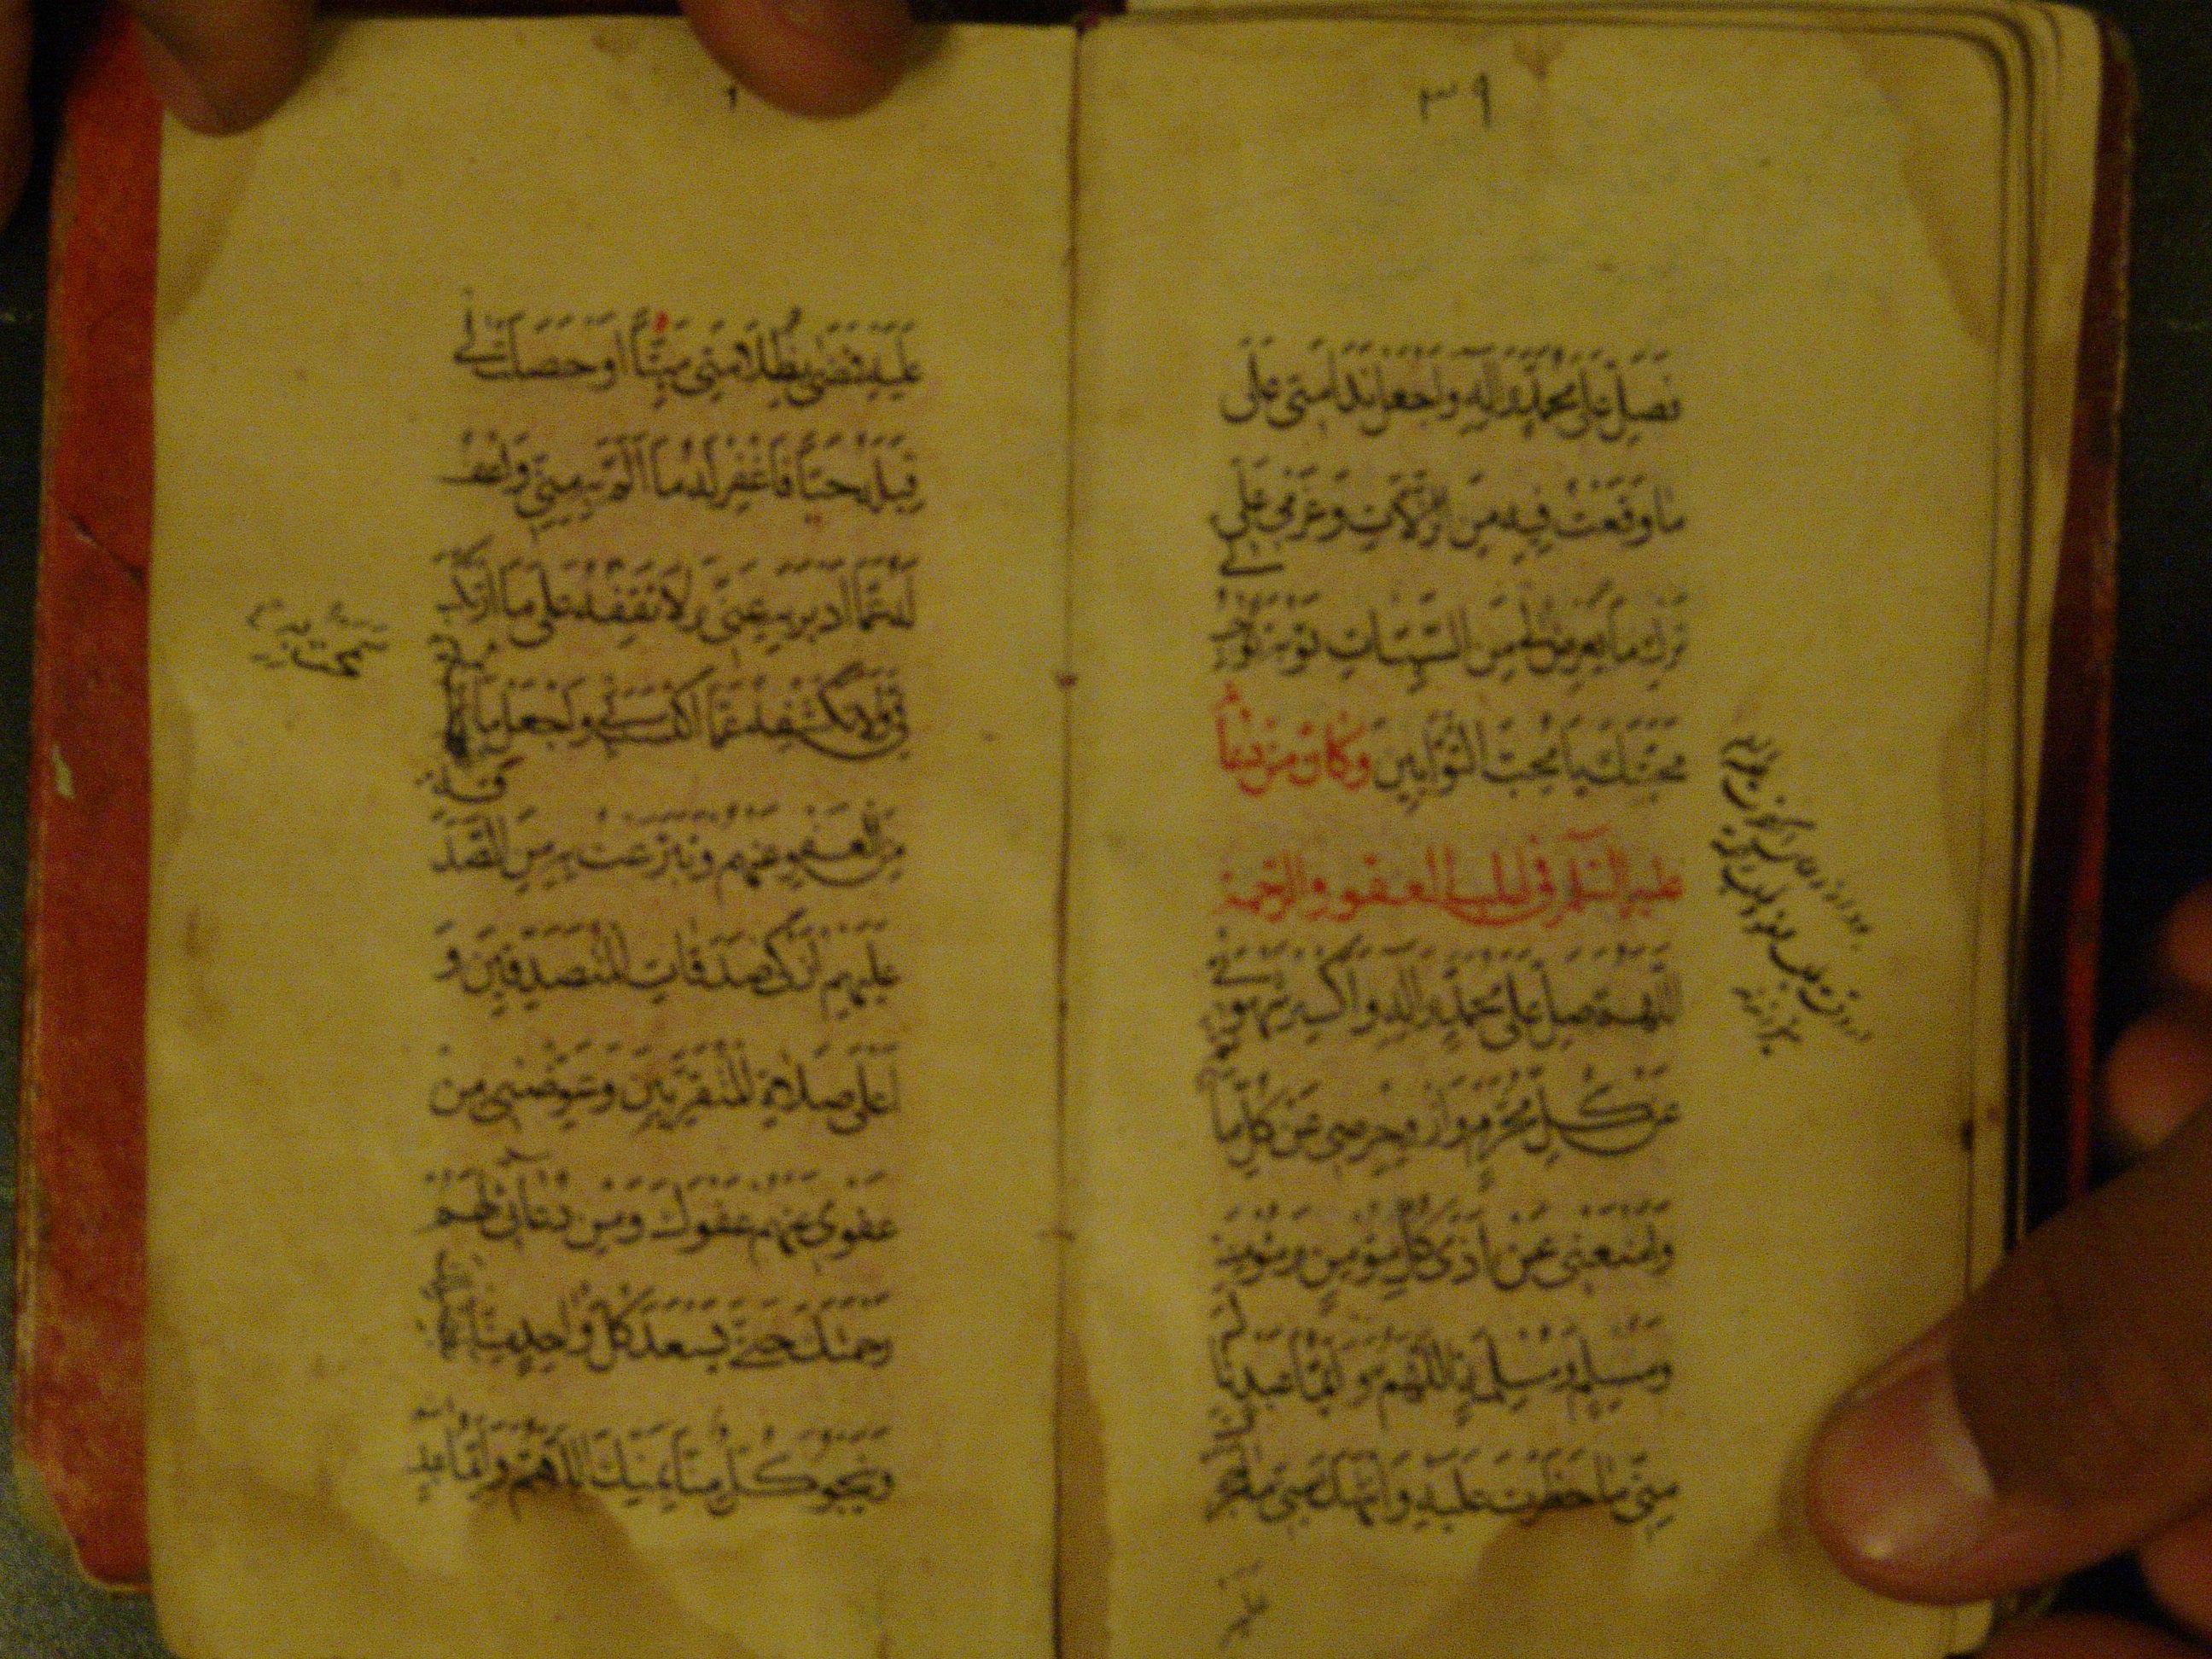 ٣٩
فَصَلِّ عَلَى مُحَمَّدٍ وَآلِهِ وَاجْعَلْ نَدَامَتِي عَلَى
مَا وَقَعْتُ فِيهِ مِنَ الزَّلَّاتِ وَعَزْمِي عَلَى
تَرْكِ مَا يَعْرِضُ لِي مِنَ السَّيِّئَاتِ تَوْبَةً تُوجِبُ لِي
مَحَبَّتَكَ يَا مُحِبَّ التَّوَّابِينَ وَكَانَ مِنْ دُعَائِهِ
عَلَيْهِ السَّلَامُ فِي طَلَبِ الْعَفْوِ وَالرَّحْمَةِ
اللَّهُمَّ صَلِّ عَلَى مُحَمَّدٍ وَآلِهِ وَاكْسِرْ شَهْوَتِي
عَنْ كُلِّ مَحْرَمٍ وَازْوِ حِرْصِي عَنْ كُلِّ مَأْثَمٍ
وَامْنَعْنِي عَنْ أَذَى كُلِّ مُؤْمِنٍ وَمُؤْمِنَةٍ
وَمُسْلِمٍ وَمُسْلِمَةٍ اللَّهُمَّ وَأَيُّمَا عَبْدٍ نَالَ
مِنِّي مَا حَظَرْتَ عَلَيْهِ وَانْتَهَكَ مِنِّي مَا حَجَرْتَ
عليه
عَلَيْهِ فَمَضَى بِظُلَامَتِي مَيِّتًا أَوْ حَصَلَتْ لِي
قِبَلَهُ حَيًّا فَاغْفِرْ لَهُ مَا أَلَمَّ بِهِ مِنِّي وَاعْفُ
لَهُ عَمَّا أَدْبَرَ بِهِ عَنِّي وَلَا تَقِفْهُ عَلَى مَا ارْتَكَبَ
فِيَّ وَلَا تَكْشِفْهُ عَمَّا اكْتَسَبَ بِي وَاجْعَلْ مَا سَمَحْتُ بِهِ
مِنَ الْعَفْوِ عَنْهُمْ وَتَبَرَّعْتُ بِهِ مِنَ الصَّدَقَةِ
عَلَيْهِمْ أَزْكَى صَدَقَاتِ الْمُتَصَدِّقِينَ وَ
أَعْلَى صِلَاةِ الْمُتَقَرِّبِينَ وَعَوِّضْنِي مِنْ
عَفْوِي عَنْهُمْ عَفْوَكَ وَمِنْ دُعَائِي لَهُمْ
رَحْمَتَكَ حَتَّى يَسْعَدَ كُلُّ وَاحِدٍ مِنَّا بِفَضْلِكَ
وَيَنْجُوَ كُلٌّ مِنَّا بِمَنِّكَ اللَّهُمَّ وَأَيُّمَا عَبْدٍ